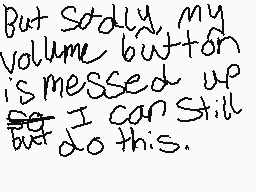 But sadly, my
volume button
is messed up
so I can still
but do this.